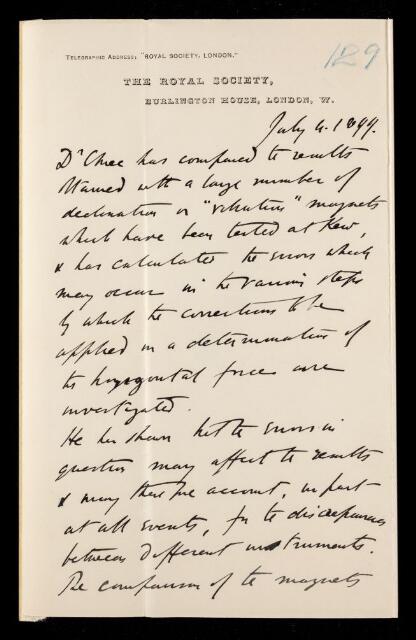 129
TELEGRAPHIC ADDRESS: "ROYAL SOCIETY, LONDON."
THE ROYAL SOCIETY,
BURLINGTON HOUSE, LONDON, W.
July 4. 1899.
Dr Chree has compared the results
obtained with a large number of
declination or "vibration" magnets
which have been tested at Kew,
& has calculated the errors which
may occur in the various steps
by which the corrections to be
applied in a determination of
the horizontal force are
investigated.
He has shown that the errors in
question may affect the results
& may therefore account, in part
at all events, for the discrepancies
between different instruments.
The comparison of the magnets